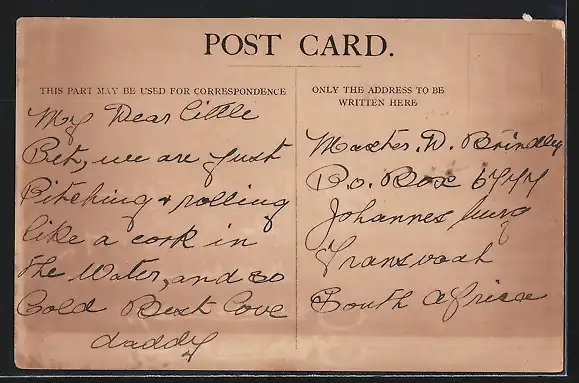 POST CARD.
THIS PART MAY BE USED FOR CORRESPONDENCE
My Dear little
Pet, we are just
Pitching & rolling
like a cork in
the Water, and so
Cold Best love
daddy
ONLY THE ADDRESS TO BE
WRITTEN HERE
Master. D. Brindley
P.o. Box 6777
Johannesburg
Transvaal
South Africa